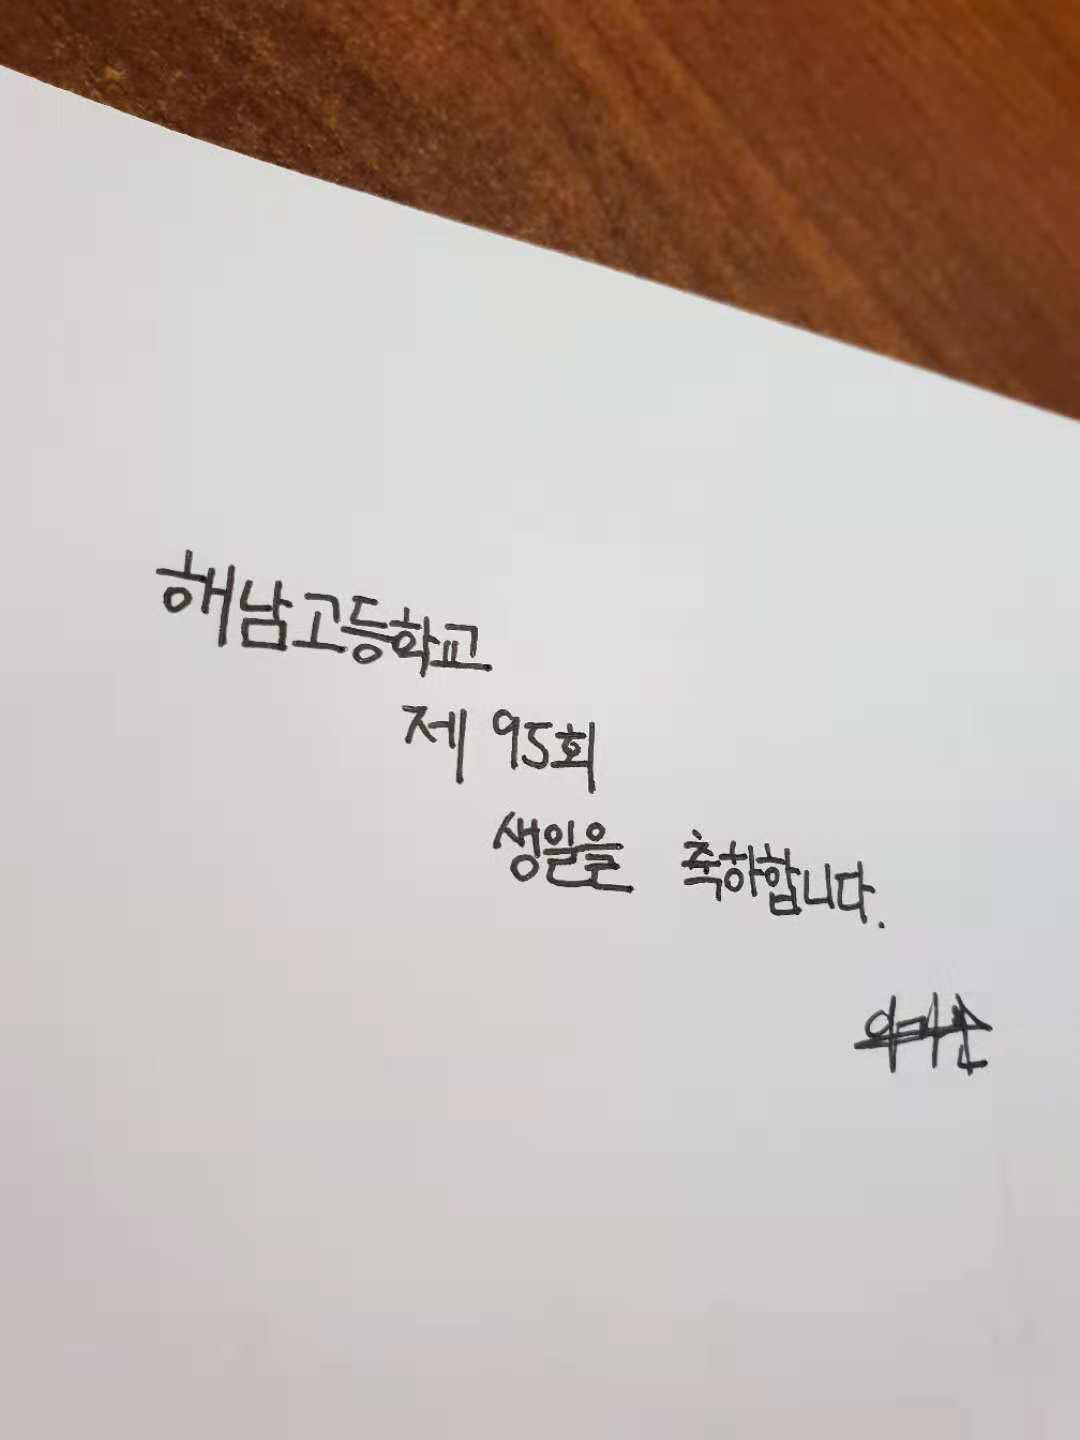 해남고등학교
제 95회
생일을 축하합니다.